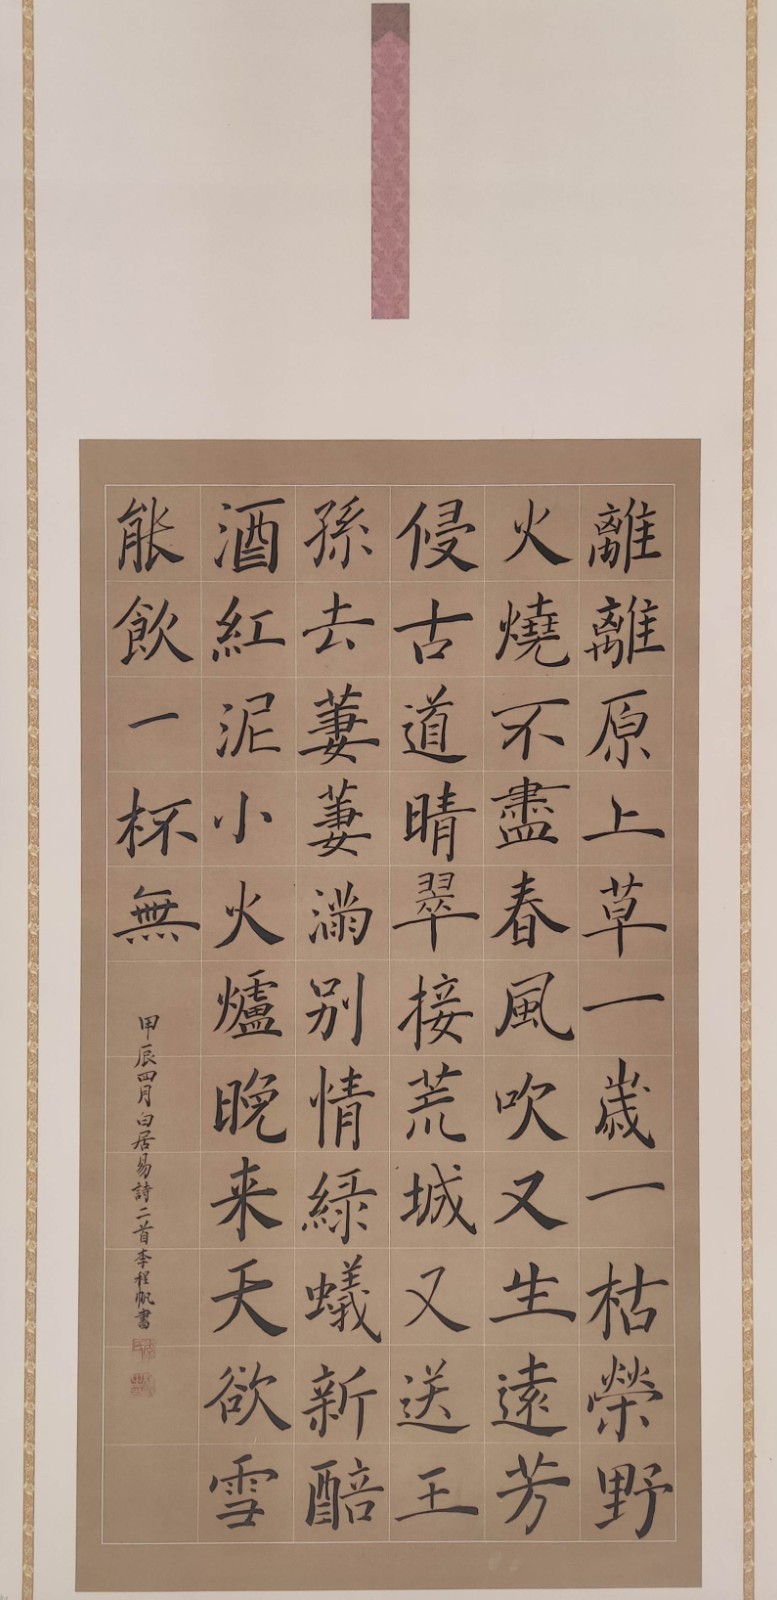 離離原上草一歲一枯榮野
火燒不盡春風吹又生遠芳
侵古道晴翠接荒城又送王
孫去萋萋滿別情綠蟻新醅
酒紅泥小火爐晚来天欲雪
能飲一杯無
甲辰四月白居易詩二首李程帆書